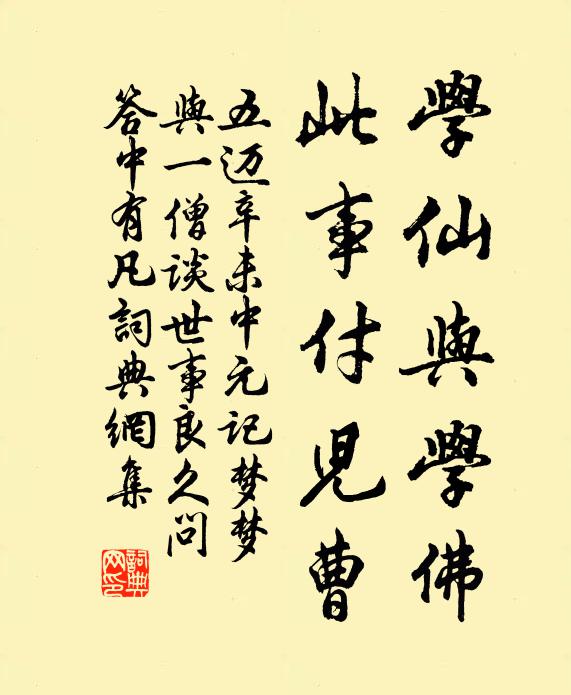 學仙與學佛
此事付兒曹
五迈辛未中元记梦梦
與一僧谈世事良久问
答中有凡詞典網集
詞典
网印